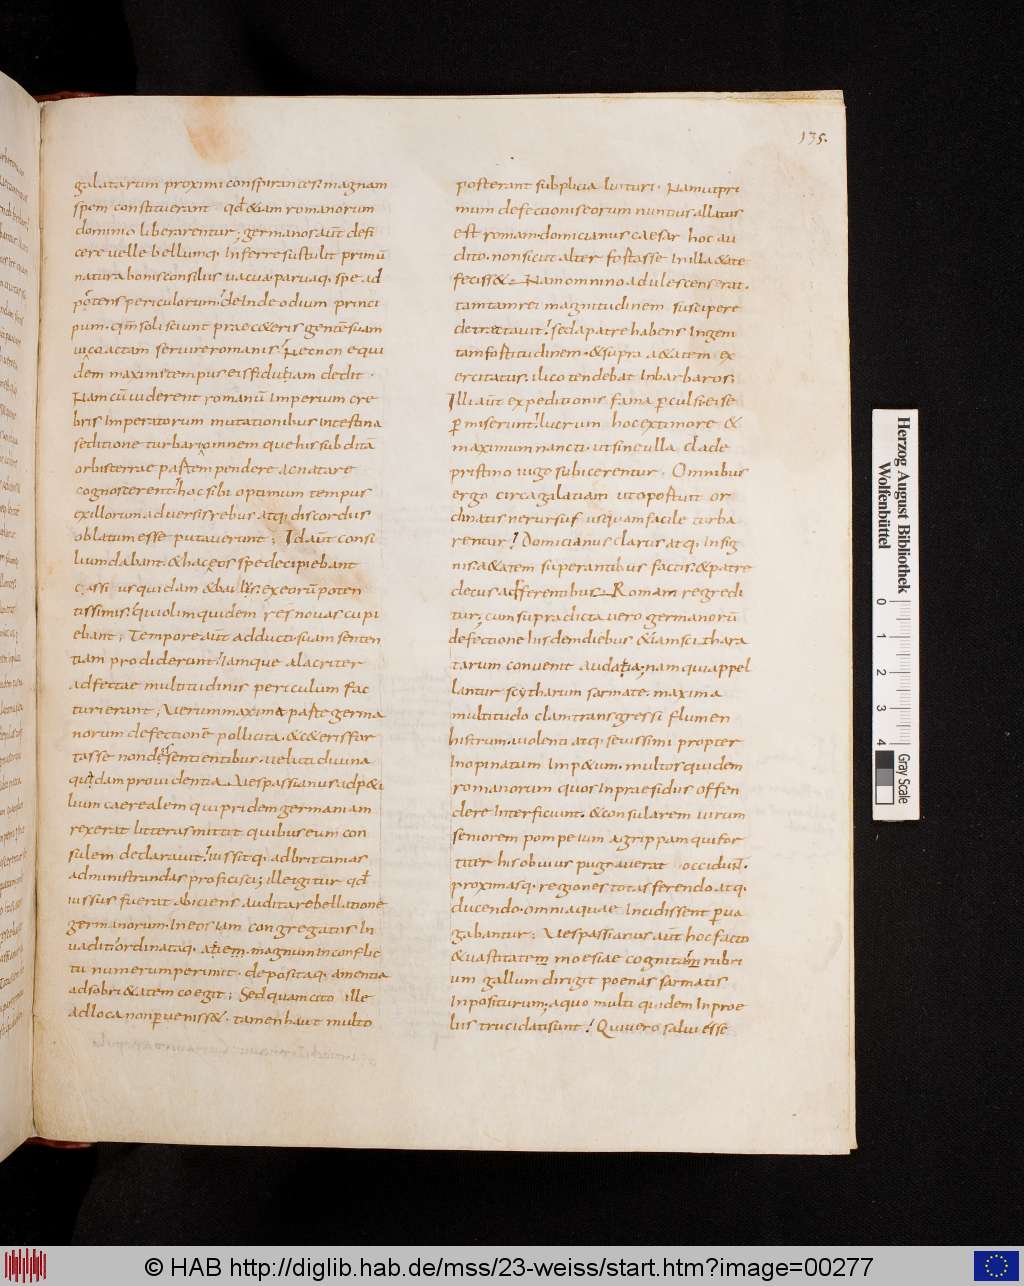 135.
galatarum proximi conspirantes. magnam
spem constituerant qđ &iam romanorum
dominio liberarentur; germanos aūt defi
cere velle bellumq. Inferre sustulit primū
natura bonis consilus vacua. paruaq. spe ad
potens periculorum! deInde odium princi
pum. qm̄ soli sciunt praec&eris gentēsuam
vi coactam seruire romanis! Nec non equi
dem maxime tempus eis fidutiam dedit.
Nam cū viderent romanū Imperium cre
bris Imperatorum mutationibus Intestina
seditione turbari, omnem que his subditā
orbisterrae partem pendere ac natare
cognoscerent! hoc sibi optimum tempus
exillorum adversis rebus atq. discordiis
oblatum esse putauerunt; Id aūt consi
lium dabant. & hac eos spe decipiebant
Cassi us quidam & ciuilis. exeorū poten
tissimis. qui olim quidem res novas cupi
ebant; Tempore aūt adducti suam senten
tiam prodiderunt! Iamque alacriter
adfectae multitudinis periculum fac
turi erant; Verum maxima parte germa
norum defectionē pollicita. & c&eris for
tasse non desentientibus. veluti diuina
quadam providentia. Vespassianus adp&i
lium caerealem qui pridem germaniam
rexerat litteras mittit quibus eum con
sulem declarauit! iussitq. ad brittanias
administrandas proficisci; ille igitur qđ
iussus fuerat abiciens audita rebellatione
germanorum. In eos iam congregatus In
vadit! ordinataq. atiem. magnum In conflic
tu numerum perimit. depositaq. amentia
ad sobri&atem coegit; Sed quam cito ille
ad loca non pervenisse&. tamen haut multo
posterant subplicia luituri. Nam ut pri
mum defectionis eorum nuntius allatus
est romam. domicianus caesar hoc au
dito. non sicut alter fortasse In illa &ate
feciss&. Nam omnino adulescens erat.
tamtam rei magnitudinem suscipere
detractauit! sed a patre habens Ingeni
tam fortitudinem. & supra a&atem ex
ercitatus. ilico tendebat In barbaros;
Illi aūt expeditionis fama perculsi. eise
permiserunt! lucrum hoc ex timore &
maximum nancti. ut sine ulla clade
pristino iugo subicerentur. Omnibus
ergo circa galatiam ut oportuit or
dinatis ne rursus usquam facile turba
rentur! Domicianus clarus atq. Insig
nis. a&atem superantibus factis. & patre
decus adferentibus. Romam regredi
tur; cum supradicta vero germanorū
defectione hisdem diebus &iam scithara
tarum convenit audatia; nam qui appel
lantur scytharum sarmate. maxima
multitudo clam transgressi flumen
histrum. violenti atq. sevissimi propter
Inopinatum Imp&um. multos quidem
romanorum quos In praesidiis offen
dere Interficiunt. & consularem virum
seniorem pompeium agrippam qui for
titer his obvius pugnauerat occidunt.
proximasq. regiones totas ferendo atq.
ducendo. omnia quae Incidissent perua
gabantur; Vespassianus aūt hoc facto
& vastitatem moesiae cognitam rubri
um gallum dirigit poenas sarmatis
Inpositurum; a quo multi quidem In proe
liis trucidati sunt! Qui vero salvi esse
Herzog August Bibliothek
Wolfenbüttel
0 1 2 3 4
Gray Scale
© HAB http://diglib.hab.de/mss/23-weiss/start.htm?image=00277